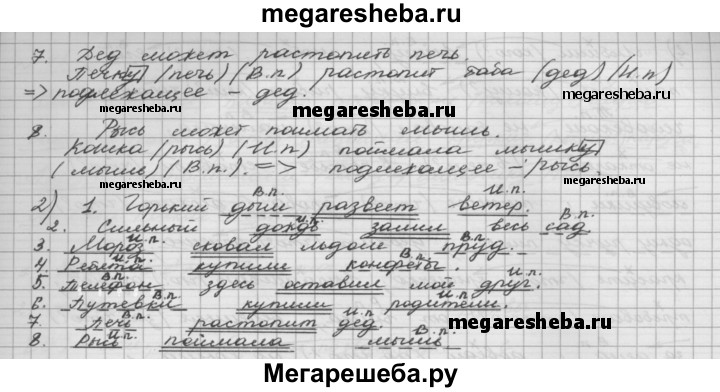 megaresheba.ru
7. Дед может растопить печь.
Печку (печь) (В.п) растопит баба (дед) (И.п)
=> подлежащее – дед. megaresheba.ru
megaresheba.ru
8. Рысь может поймать мышь.
Кошка (рысь) (И.п) поймала мышку
(мышь) (В.п.). => подлежащее – рысь.
megaresheba.ru
В.п. И.п.
2) 1. Горький дым развеет ветер.
И.п. В.п.
2. Сильный дождь залил весь сад
И.п. В.п.
3. Мороз сковал льдом пруд.
И.п. В.п.
4 Ребята купили конфеты.
В.п. И.п.
5. Телефон здесь оставил мой друг.
В.п. И.п.
6. Путевки купили родители.
В.п. И.п.
7 Печь растопит дед. megaresheba.ru
И.п. В.п.
8. Рысь поймала мышь.
Мегарешеба.ру